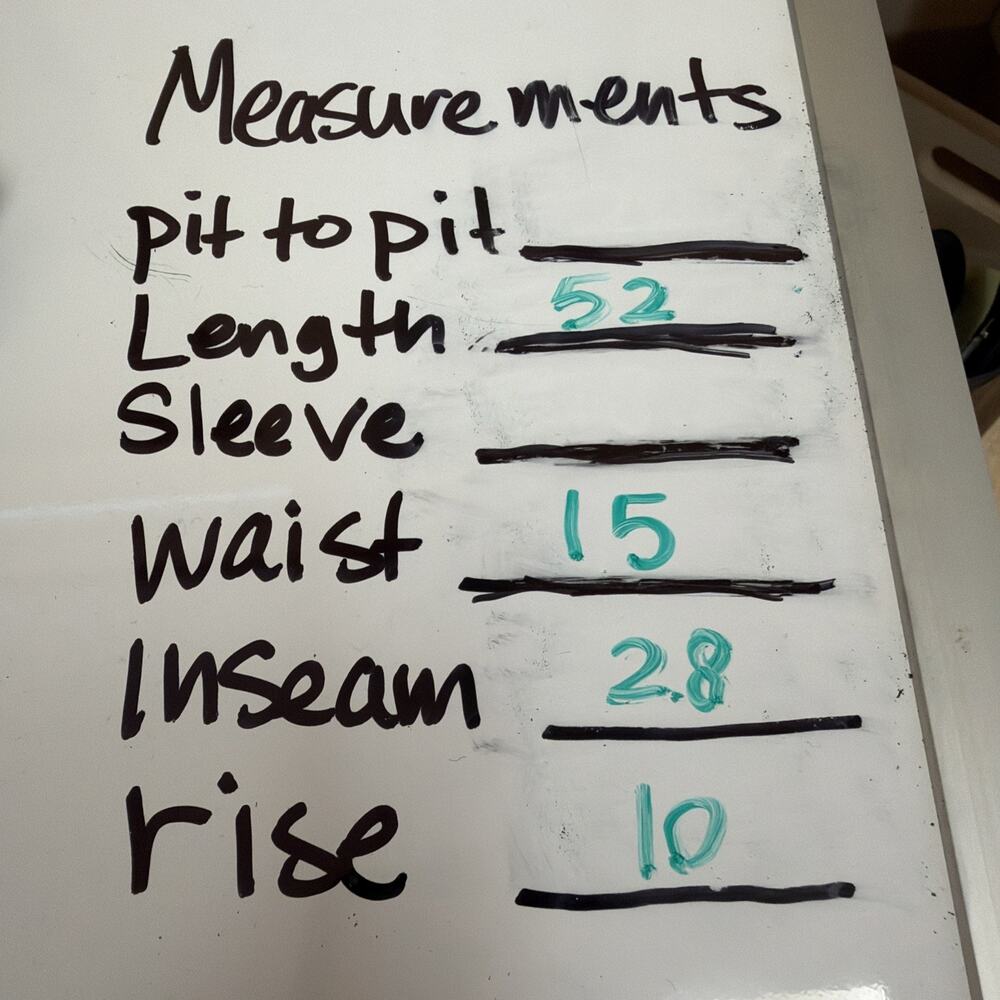 Measurements
pit to pit
Length 52
Sleeve
waist 15
Inseam 2.8
rise 10